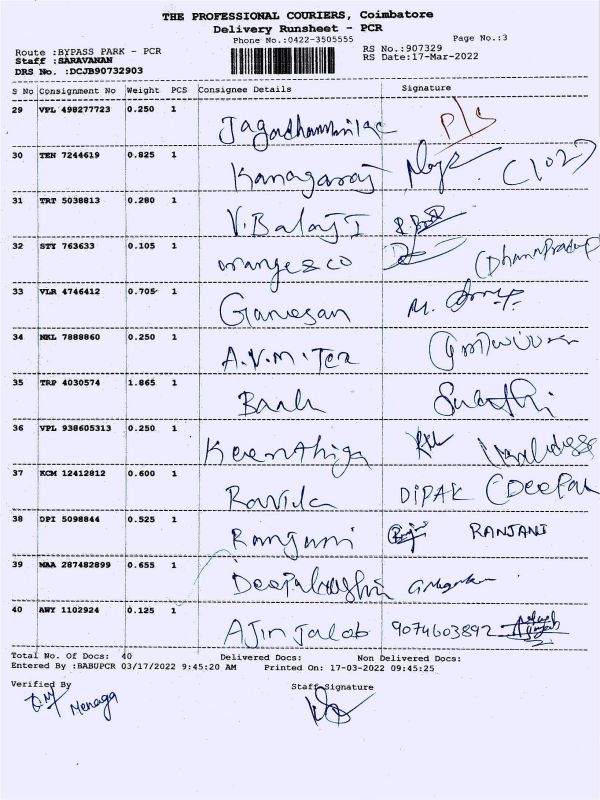 THE PROFESSIONAL COURIERS, Coimbatore
Delivery Runsheet - PCR
Phone No.:0422-3505555 Page No.:3
Route :BYPASS PARK - PCR RS No.:907329
Staff :SARAVANAN RS Date:17-Mar-2022
DRS No. :DCJB90732903
S No Consignment No Weight PCS Consignee Details Signature
29 VPL 498277723 0.250 1 P/s
30 TEN 7244619 0.825 1 Kanagaraj (102)
31 TRT 5038813 0.280 1 V.Balaji
32 STY 763633 0.105 1 orange & co
33 VLR 4746412 0.705 1 Ganesan M.
34 NKL 7888860 0.250 1 A.V.M. Tex
35 TRP 4030574 1.865 1 Bank
36 VPL 938605313 0.250 1 Keerthiga
37 KCM 12412812 0.600 1 DIPAK (Deepak
38 DPI 5098844 0.525 1 Ranjani RANJANI
39 MAA 287482899 0.655 1
40 AWY 1102924 0.125 1 Ajin Jacob 9074603892
Total No. Of Docs: 40 Delivered Docs: Non Delivered Docs:
Entered By :BABUPCR 03/17/2022 9:45:20 AM Printed On: 17-03-2022 09:45:25
Verified By Staff Signature
Menaga